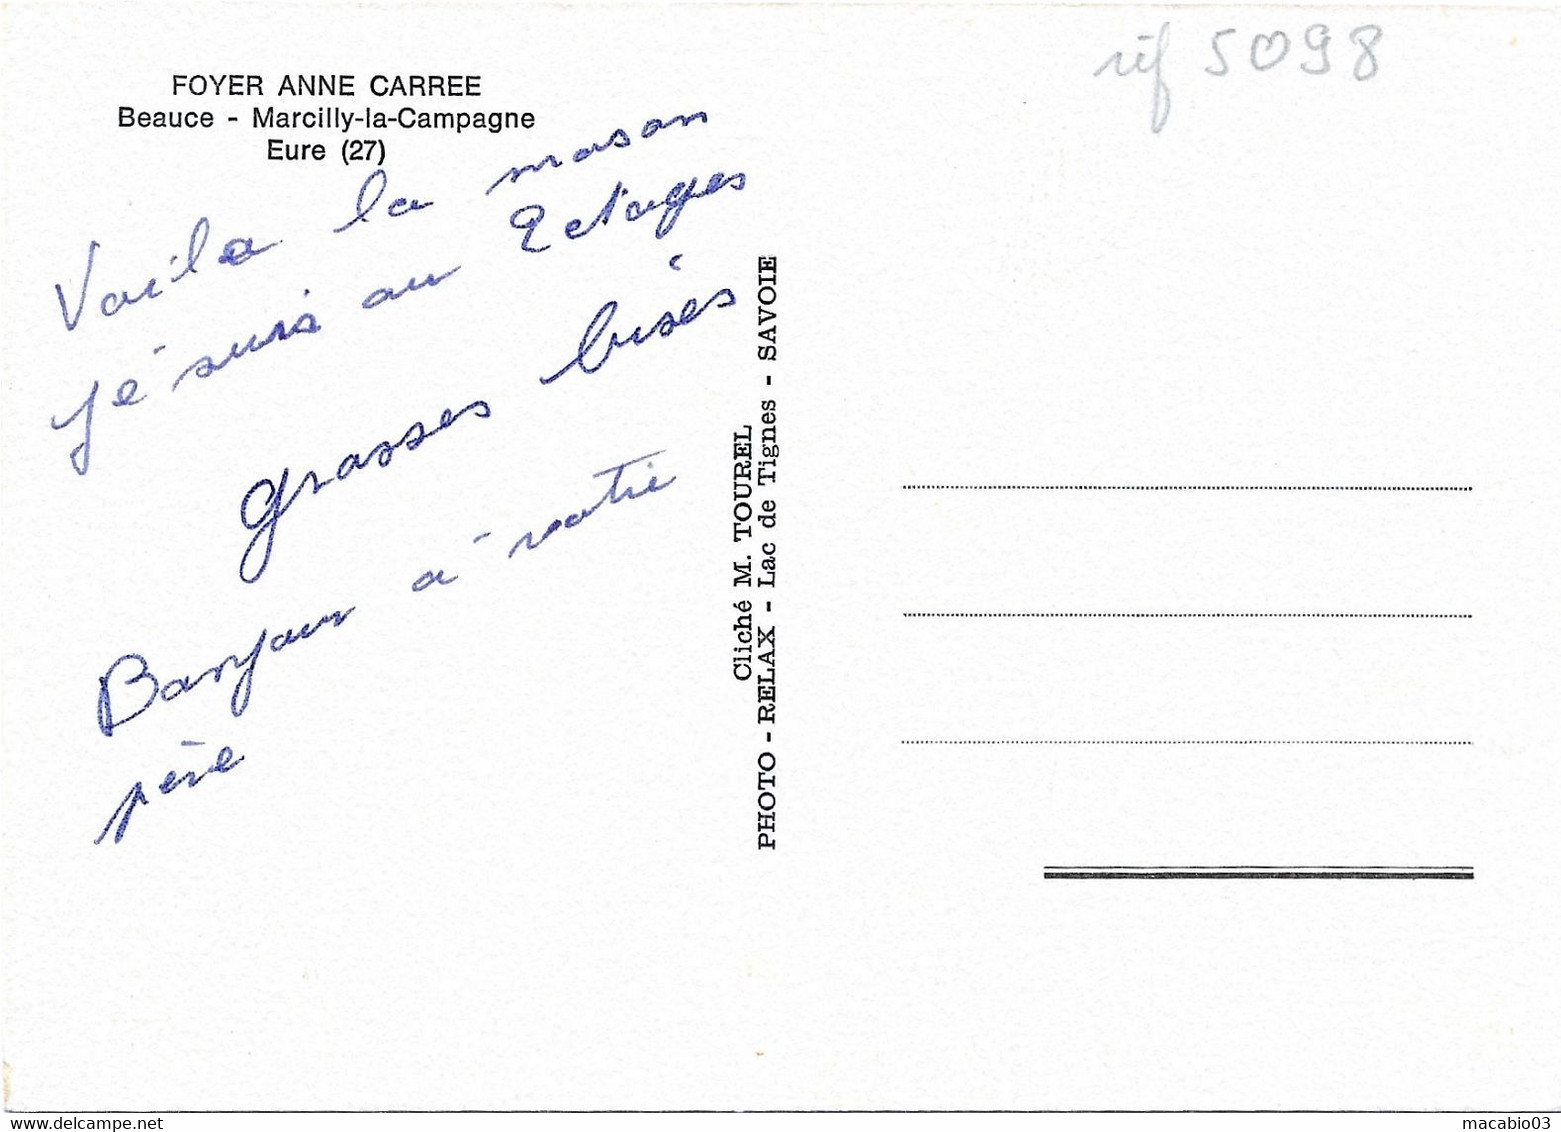 FOYER ANNE CARREE
Beauce - Marcilly-la-Campagne
Eure (27)
réf 5098
Voila la mason
je suis au 2 etages
grosses bises
Bonjour à votre
père
Cliché M. TOUREL
PHOTO - RELAX - Lac de Tignes - SAVOIE
delcampe.net
macabio03